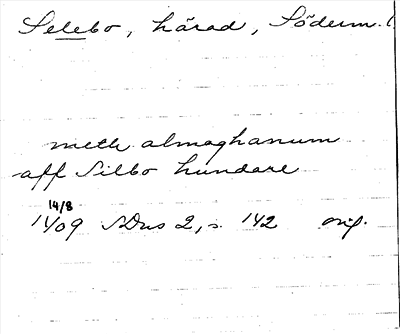 Selebo, härad, Söderm. (
meth almoghanum
aff Silbo hundare
14/8
1409 SDns 2, s. 142 orig.